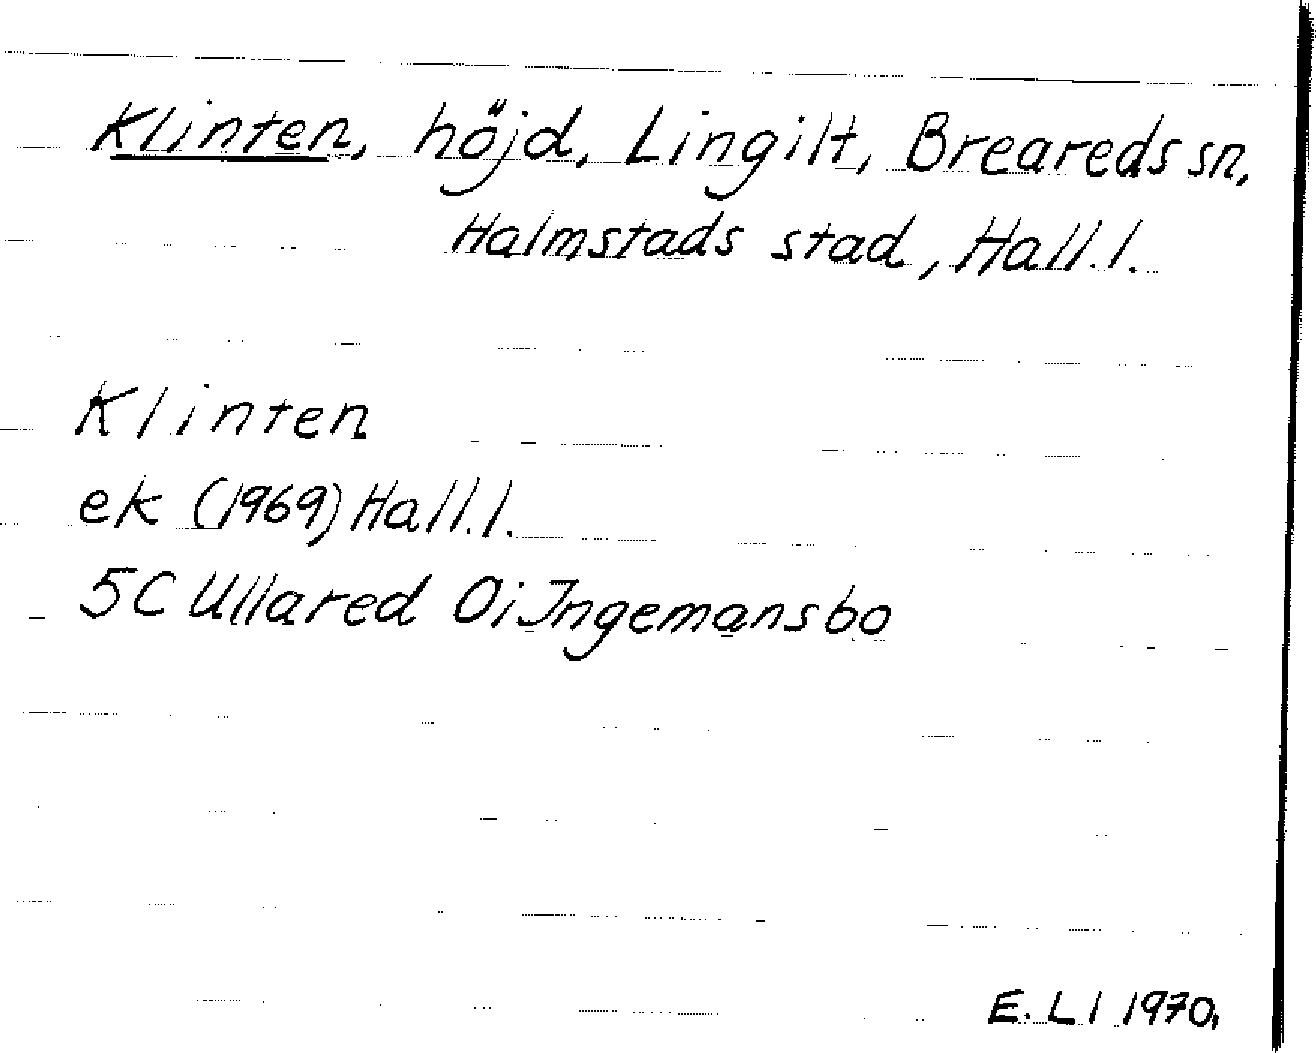 Klinten, höjd, Lingilt, Breareds sn,
Halmstads stad, Hall. l.
Klinten
ek (1969) Hall. l.
5C Ullared Oi Ingemansbo
E. LI 1970,